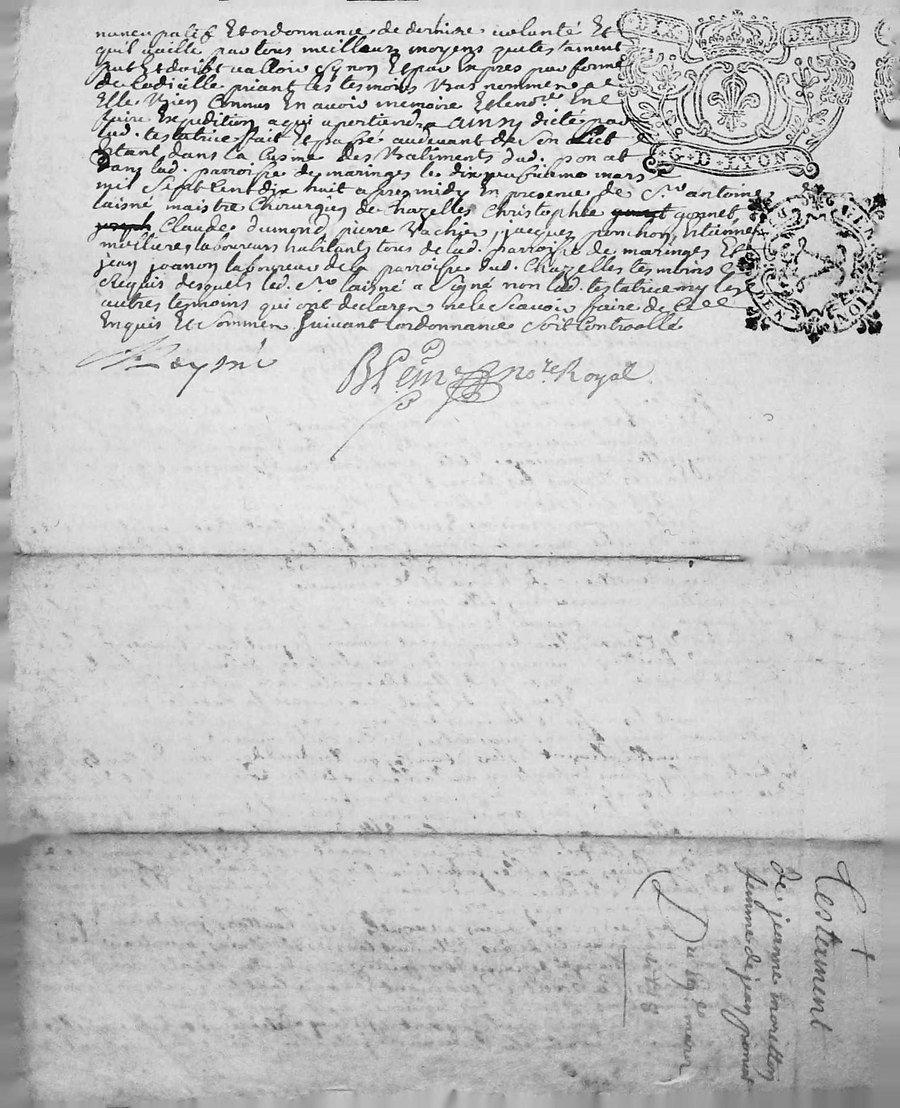 nancupatif Et ordonnance de derniere volonté Et
quil vaille par tous meilleurs moyens que testament
peut Et doibt valloir Synon Et par Expres par forme
de Codicille priant les tesmoins bas nommen
Elle bien Connus En avoir memoire Et le no.re En
faire Expedition a qui apertiendra Ainsy dicté par
lad. testatrice fait Et passé audevant de Son lict
Estant dans la des Batiments dud. ponat
dans lad. parroisse de maringes le dix neufvieme mars
mil Sept Cent dix huit apres midy En presence de Sr antoine
laisné maistre Chirurgien de Chazelles Christophle gonnet
Claude dumond, pierre Vachier, jacques ponchon, Estienne
laboureurs habitants tous de lad. parroisse de maringes Et
jean joanon laboureur de la parroisse dud. Chazelles tesmoins
Requis desquels led. Sr laisné a Signé non lad. testatrice ny les
autres tesmoins qui ont declaren ne le Scavoir faire de Ce
Enquis Et Sommen Suivant Lordonnance Soit Controollé
no.re Royal
DENIE
G·D·LYON
Testament
de jeanne moretton
femme de jean
Du 19e mars
1718